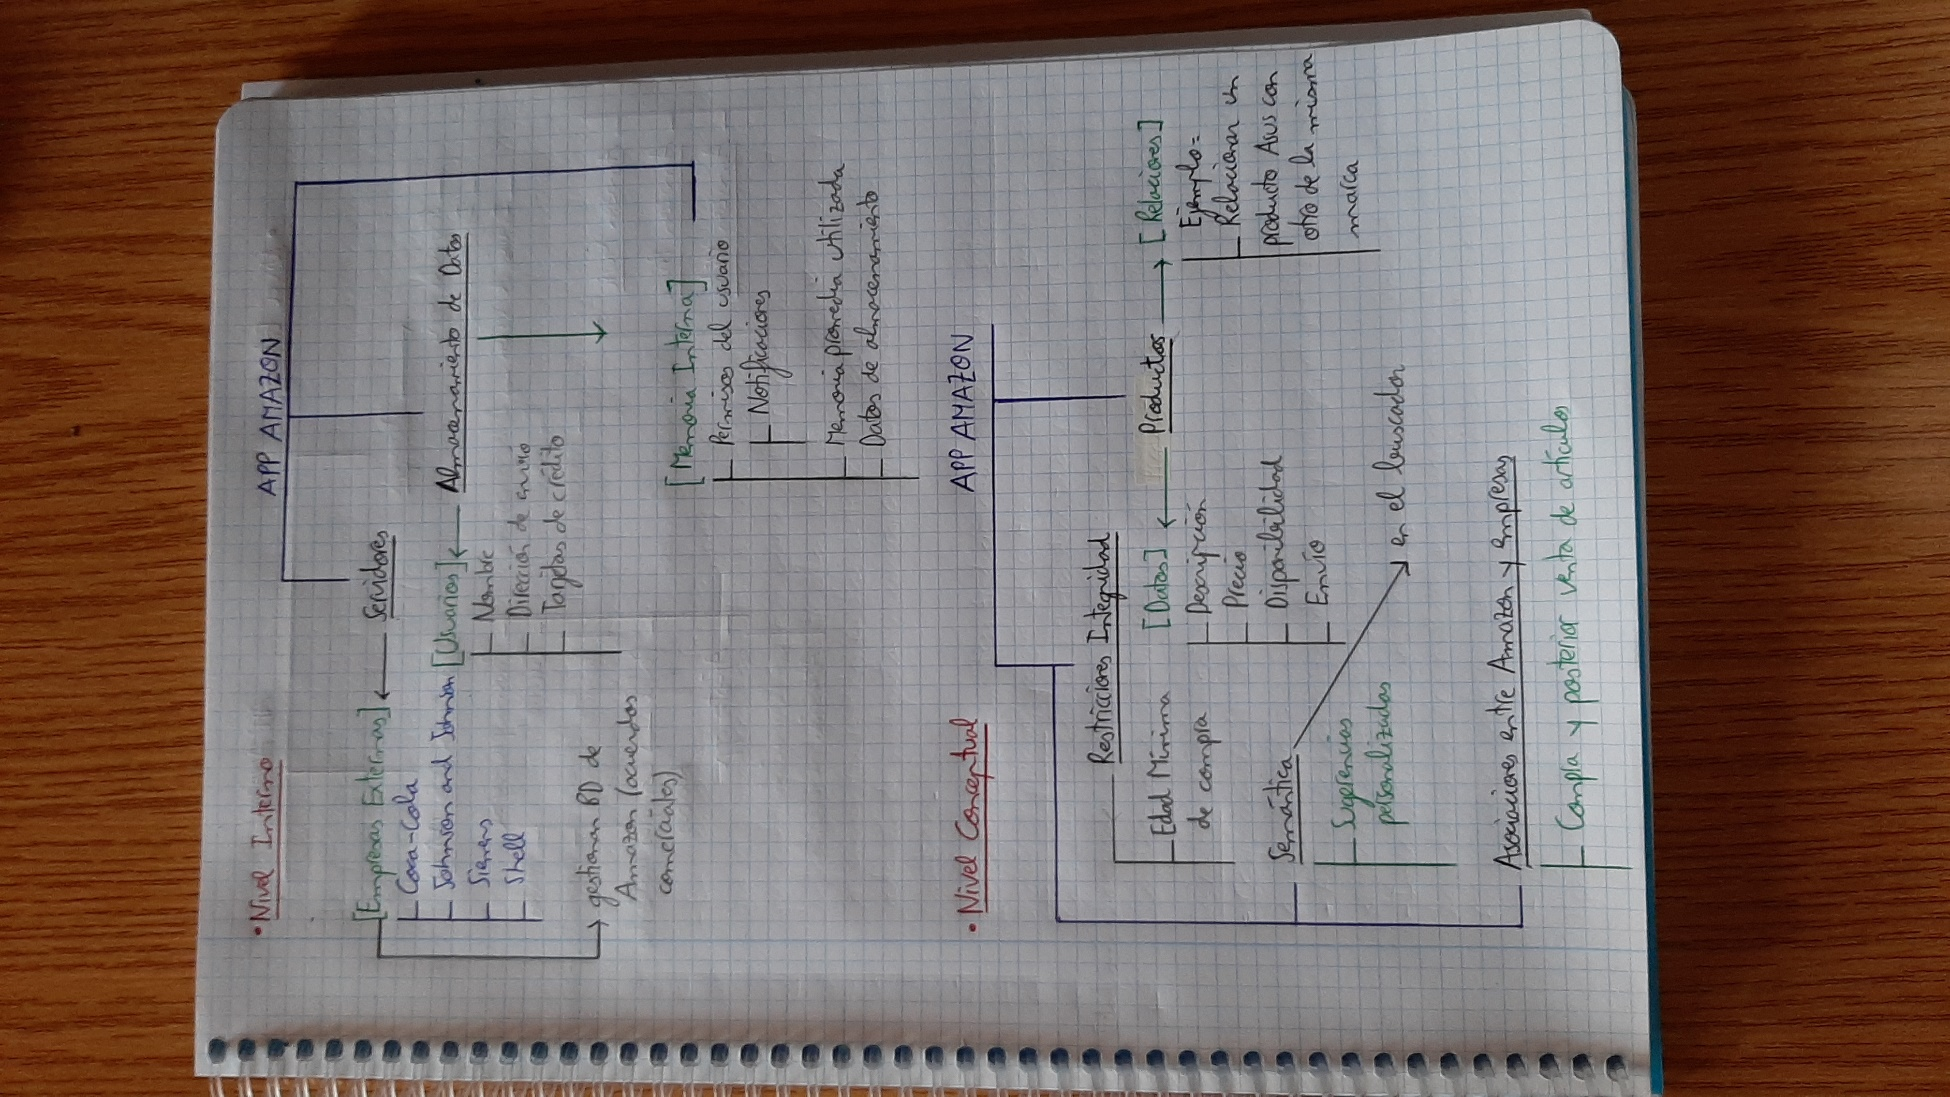 • Nivel Interno
APP AMAZON
[Empresas Externas] ← Servidores
Coca-Cola
Johnson and Johnson
Siemens
Shell
gestionan BD de
Amazon (acuerdos
comerciales)
[Usuarios] ← Almacenamiento de Datos
Nombre
Dirección de envío
Tarjetas de crédito
[Memoria Interna]
Permisos del usuario
Notificaciones
Memoria promedia utilizada
Datos de almacenamiento
• Nivel Conceptual
APP AMAZON
Restricciones Integridad
Edad Mínima
de compra
[Datos] ← Productos → [Relaciones]
Descripción
Precio
Disponibilidad
Envío
Ejemplo=
Relacionar un
producto Asus con
otro de la misma
marca
Semántica
Sugerencias
personalizadas
en el buscador
Asociaciones entre Amazon y empresas
Compra y posterior venta de artículos